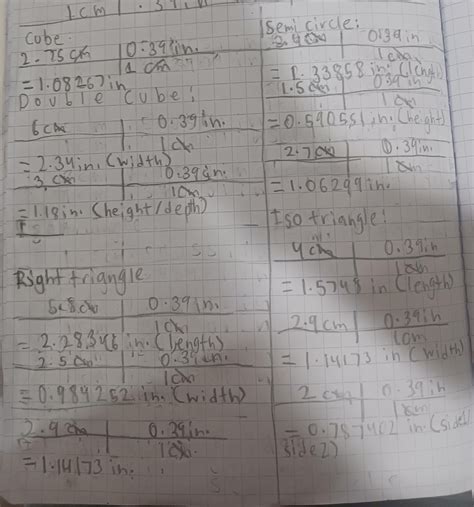 1cm | .39in
Cube:
2.75cm | 0.39in.
1cm
=1.08267in
Double Cube:
6cm | 0.39in.
1cm
=2.34in. (width)
3cm | 0.39in.
1cm
=1.18in. (height/depth)
Right triangle
5.8cm | 0.39in.
1cm
=2.28346 in. (length)
2.5cm | 0.39in.
1cm
=0.984252 in. (width)
2.9cm | 0.39in.
1cm
=1.14173 in.
Semi circle:
3.4cm | 0.39in
1cm
=1.33858 in. (length)
1.5cm | 0.39in
1cm
=0.590551 in. (height)
2.7cm | 0.39in.
1cm
=1.06299in.
Iso triangle:
4cm | 0.39in
1cm
=1.5748 in (length)
2.9cm | 0.39in
1cm
=1.14173 in (width)
2cm | 0.39in
1cm
=0.787402 in. (side1
side2)